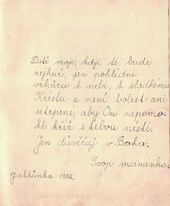 Dítě moje, když ti bude
nejhůř, jen pohlédni
vzhůru k nebi, k sladkému
Kristu a není bolest ani
utrpení, aby On nepomo-
hl kříž s tebou nésti.
Jen důvěřuj v Boha.
Tvoje maminka.
Jablůnka 1932.